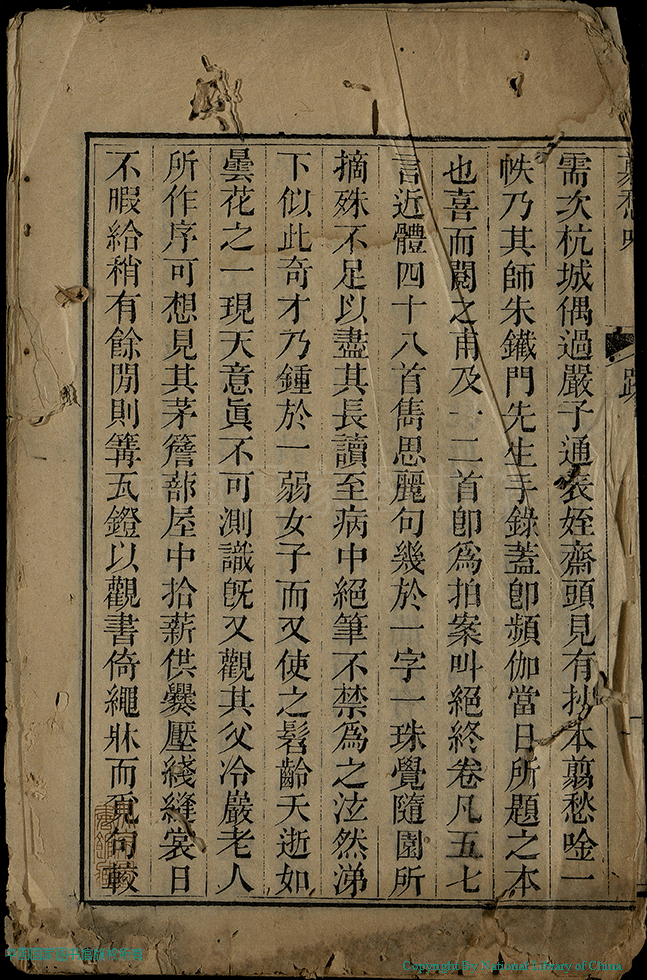 翦愁唫
跋
需次杭城偶過嚴子通表姪齋頭見有抄本翦愁唫一
帙乃其師朱鐵門先生手錄蓋卽頻伽當日所題之本
也喜而閱之甫及十二首卽爲拍案叫絕終卷凡五七
言近體四十八首雋思麗句幾於一字一珠覺隨園所
摘殊不足以盡其長讀至病中絕筆不禁爲之泣然涕
下似此奇才乃鍾於一弱女子而又使之髫齡夭逝如
曇花之一現天意眞不可測識旣又觀其父冷嚴老人
所作序可想見其茅簷蔀屋中拾薪供爨壓綫縫裳日
不暇給稍有餘閒則篝瓦鐙以觀書倚繩牀而覓句較
Copyright by National Library of China